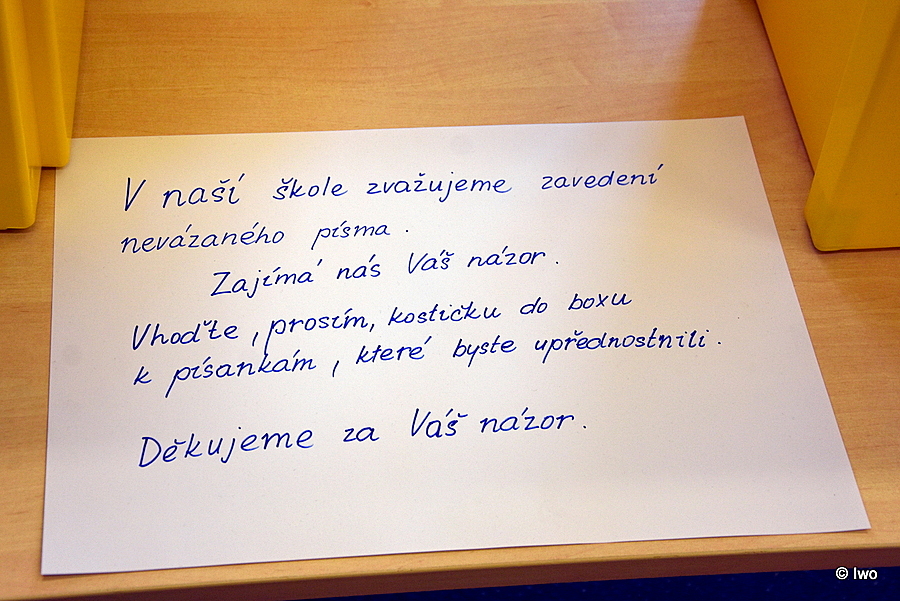 V naší škole zvažujeme zavedení
nevázaného písma.
Zajímá nás Váš názor.
Vhoďte, prosím, kostičku do boxu
k písankám, které byste upřednostnili.
Děkujeme za Váš názor.
© Iwo